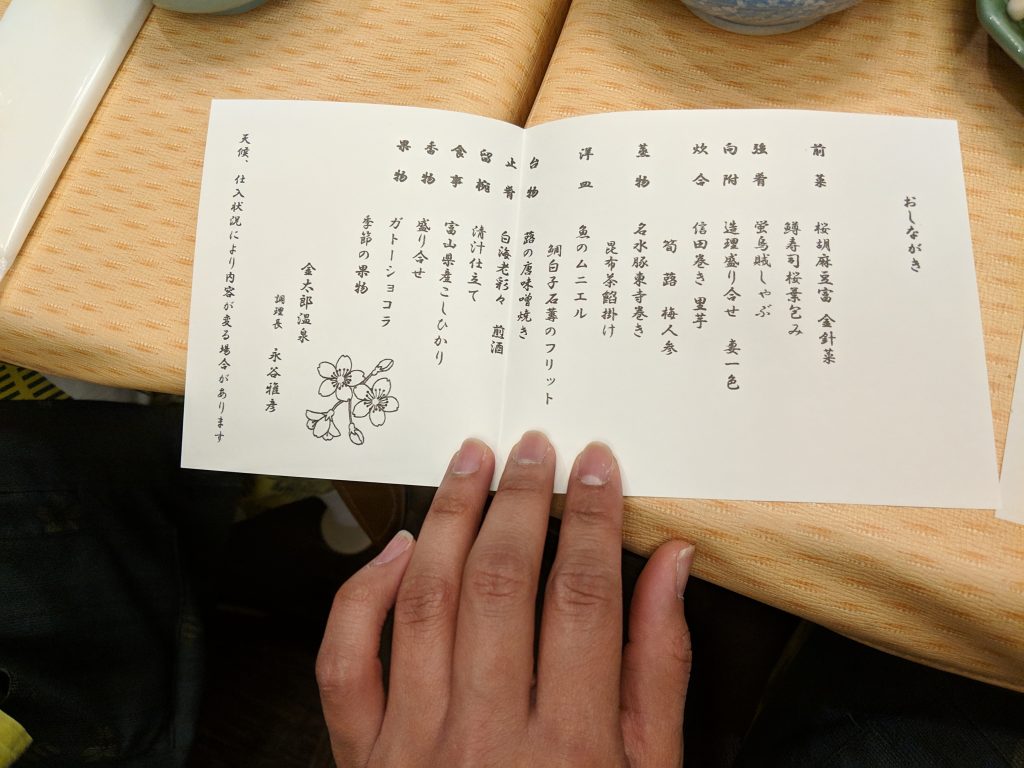 おしながき
前菜 桜胡麻豆富 金針菜
鱒寿司桜葉包み
強肴 蛍烏賊しゃぶ
向附 造理盛り合せ 妻一色
炊合 信田巻き 里芋
筍 蕗 梅人参
蒸物 名水豚東寺巻き
昆布茶餡掛け
洋皿 魚のムニエル
鯛白子石蓴のフリット
台物 蕗の唐味噌焼き
止肴 白海老彩々 煎酒
留椀 清汁仕立て
食事 富山県産こしひかり
香物 盛り合せ
果物 ガトーショコラ
季節の果物
金太郎温泉
調理長 永谷雅彦
天候、仕入状況により内容が変る場合があります